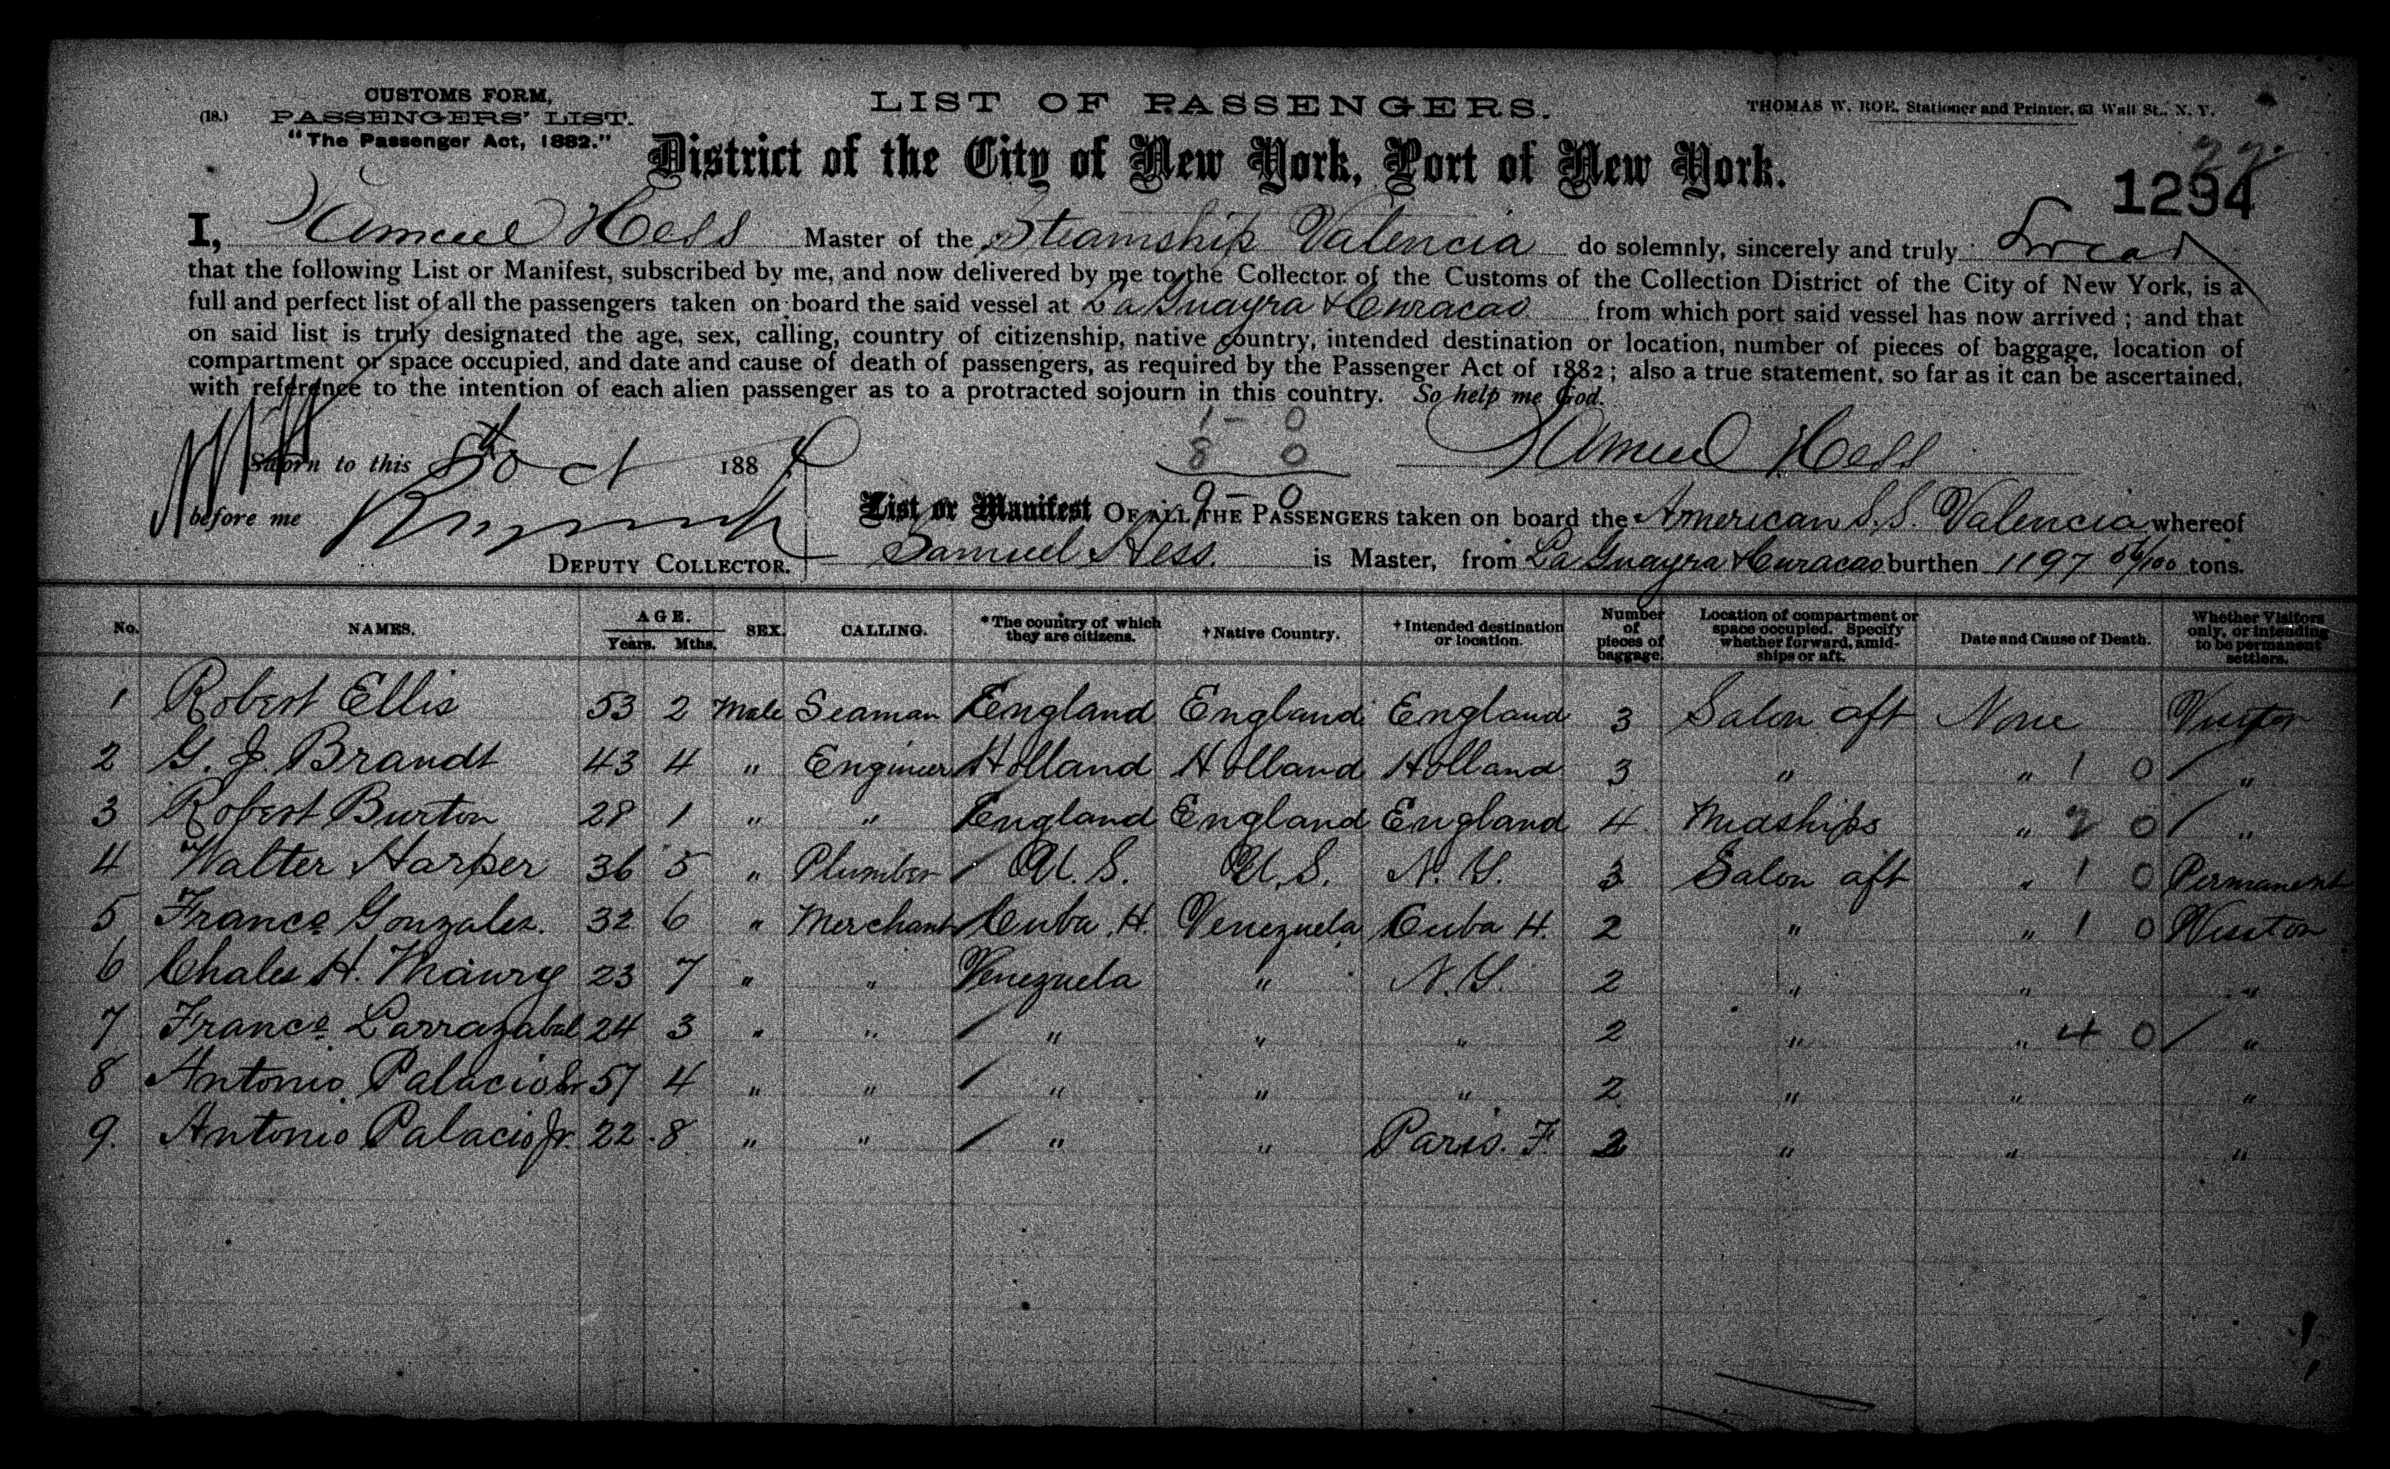 CUSTOMS FORM,
(18.) PASSENGERS' LIST.
"The Passenger Act, 1882."
LIST OF PASSENGERS.
THOMAS W. ROE, Stationer and Printer, 63 Wall St., N. Y.
District of the City of New York, Port of New York.
1294
I, Samuel Hess Master of the Steamship Valencia do solemnly, sincerely and truly Swear
that the following List or Manifest, subscribed by me, and now delivered by me to the Collector of the Customs of the Collection District of the City of New York, is a
full and perfect list of all the passengers taken on board the said vessel at La Guayra & Curacao from which port said vessel has now arrived; and that
on said list is truly designated the age, sex, calling, country of citizenship, native country, intended destination or location, number of pieces of baggage, location of
compartment or space occupied, and date and cause of death of passengers, as required by the Passenger Act of 1882; also a true statement, so far as it can be ascertained,
with reference to the intention of each alien passenger as to a protracted sojourn in this country. So help me God.
1 - 0
8 0
9 - 0
Sworn to this 8th Oct 1884 Samuel Hess
before me
DEPUTY COLLECTOR.
List or Manifest OF ALL THE PASSENGERS taken on board the American S.S. Valencia whereof
Samuel Hess. is Master, from La Guayra & Curacao burthen 1197 56/100 tons.
No. NAMES. AGE. Years. Mths. SEX. CALLING. *The country of which they are citizens. †Native Country. †Intended destination or location. Number of pieces of baggage. Location of compartment or space occupied. Specify whether forward, amidships or aft. Date and Cause of Death. Whether Visitors only, or intending to be permanent settlers.
1 Robert Ellis 53 2 Male Seaman England England England 3 Salon aft None Visitor
2 G. J. Brandt 43 4 " Engineer Holland Holland Holland 3 " " 1 0 "
3 Robert Burton 28 1 " " England England England 4 Midships " 2 0 "
4 Walter Harper 36 5 " Plumber U. S. U. S. N. Y. 3 Salon aft " 1 0 Permanent
5 Franco Gonzales. 32 6 " Merchant Cuba. H. Venezuela Cuba H. 2 " " 1 0 Visitor
6 Chales H. Maury 23 7 " " Venezuela " N. Y. 2 " " "
7 Franco Larrazabal 24 3 " " " " " 2 " " 4 0 "
8 Antonio Palacio Sr 57 4 " " " " " 2 " " "
9. Antonio Palacio Jr. 22 8 " " " " Paris. F. 2 " " "